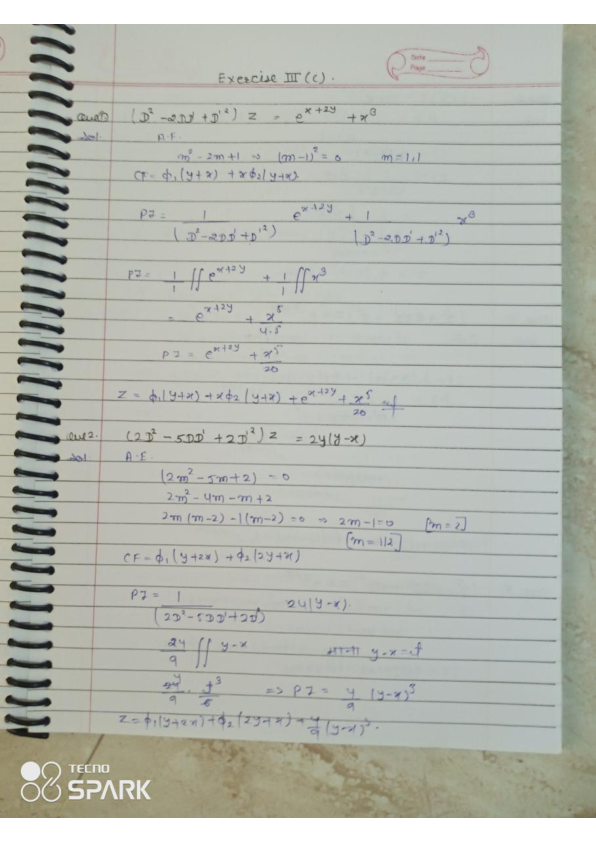 Date
Page
Exercise III (C).
Ques1. (D² - 2DD' + D'²) z = e^{x+2y} + x³
Sol. A.E.
m² - 2m + 1 ⇒ (m-1)² = 0 m = 1, 1
CF = ϕ₁(y+x) + xϕ₂(y+x)
PI = 1/(D² - 2DD' + D'²) e^{x+2y} + 1/(D² - 2DD' + D'²) x³
PI = 1/1 ∬ e^{x+2y} + 1/1 ∬ x³
= e^{x+2y} + x⁵/4.5
PI = e^{x+2y} + x⁵/20
Z = ϕ₁(y+x) + xϕ₂(y+x) + e^{x+2y} + x⁵/20
Ques2. (2D² - 5DD' + 2D'²) z = 24(y-x)
Sol. A.E.
(2m² - 5m + 2) = 0
2m² - 4m - m + 2
2m(m-2) - 1(m-2) = 0 ⇒ 2m-1=0 [m=2]
[m=1/2]
CF = ϕ₁(y+2x) + ϕ₂(2y+x)
PI = 1/(2D² - 5DD' + 2D'²) 24(y-x)
24/9 ∬ y-x माना y-x = t
24/9 · t³/6 ⇒ PI = 4/9 (y-x)³
Z = ϕ₁(y+2x) + ϕ₂(2y+x) + 4/9 (y-x)³.
TECNO
SPARK